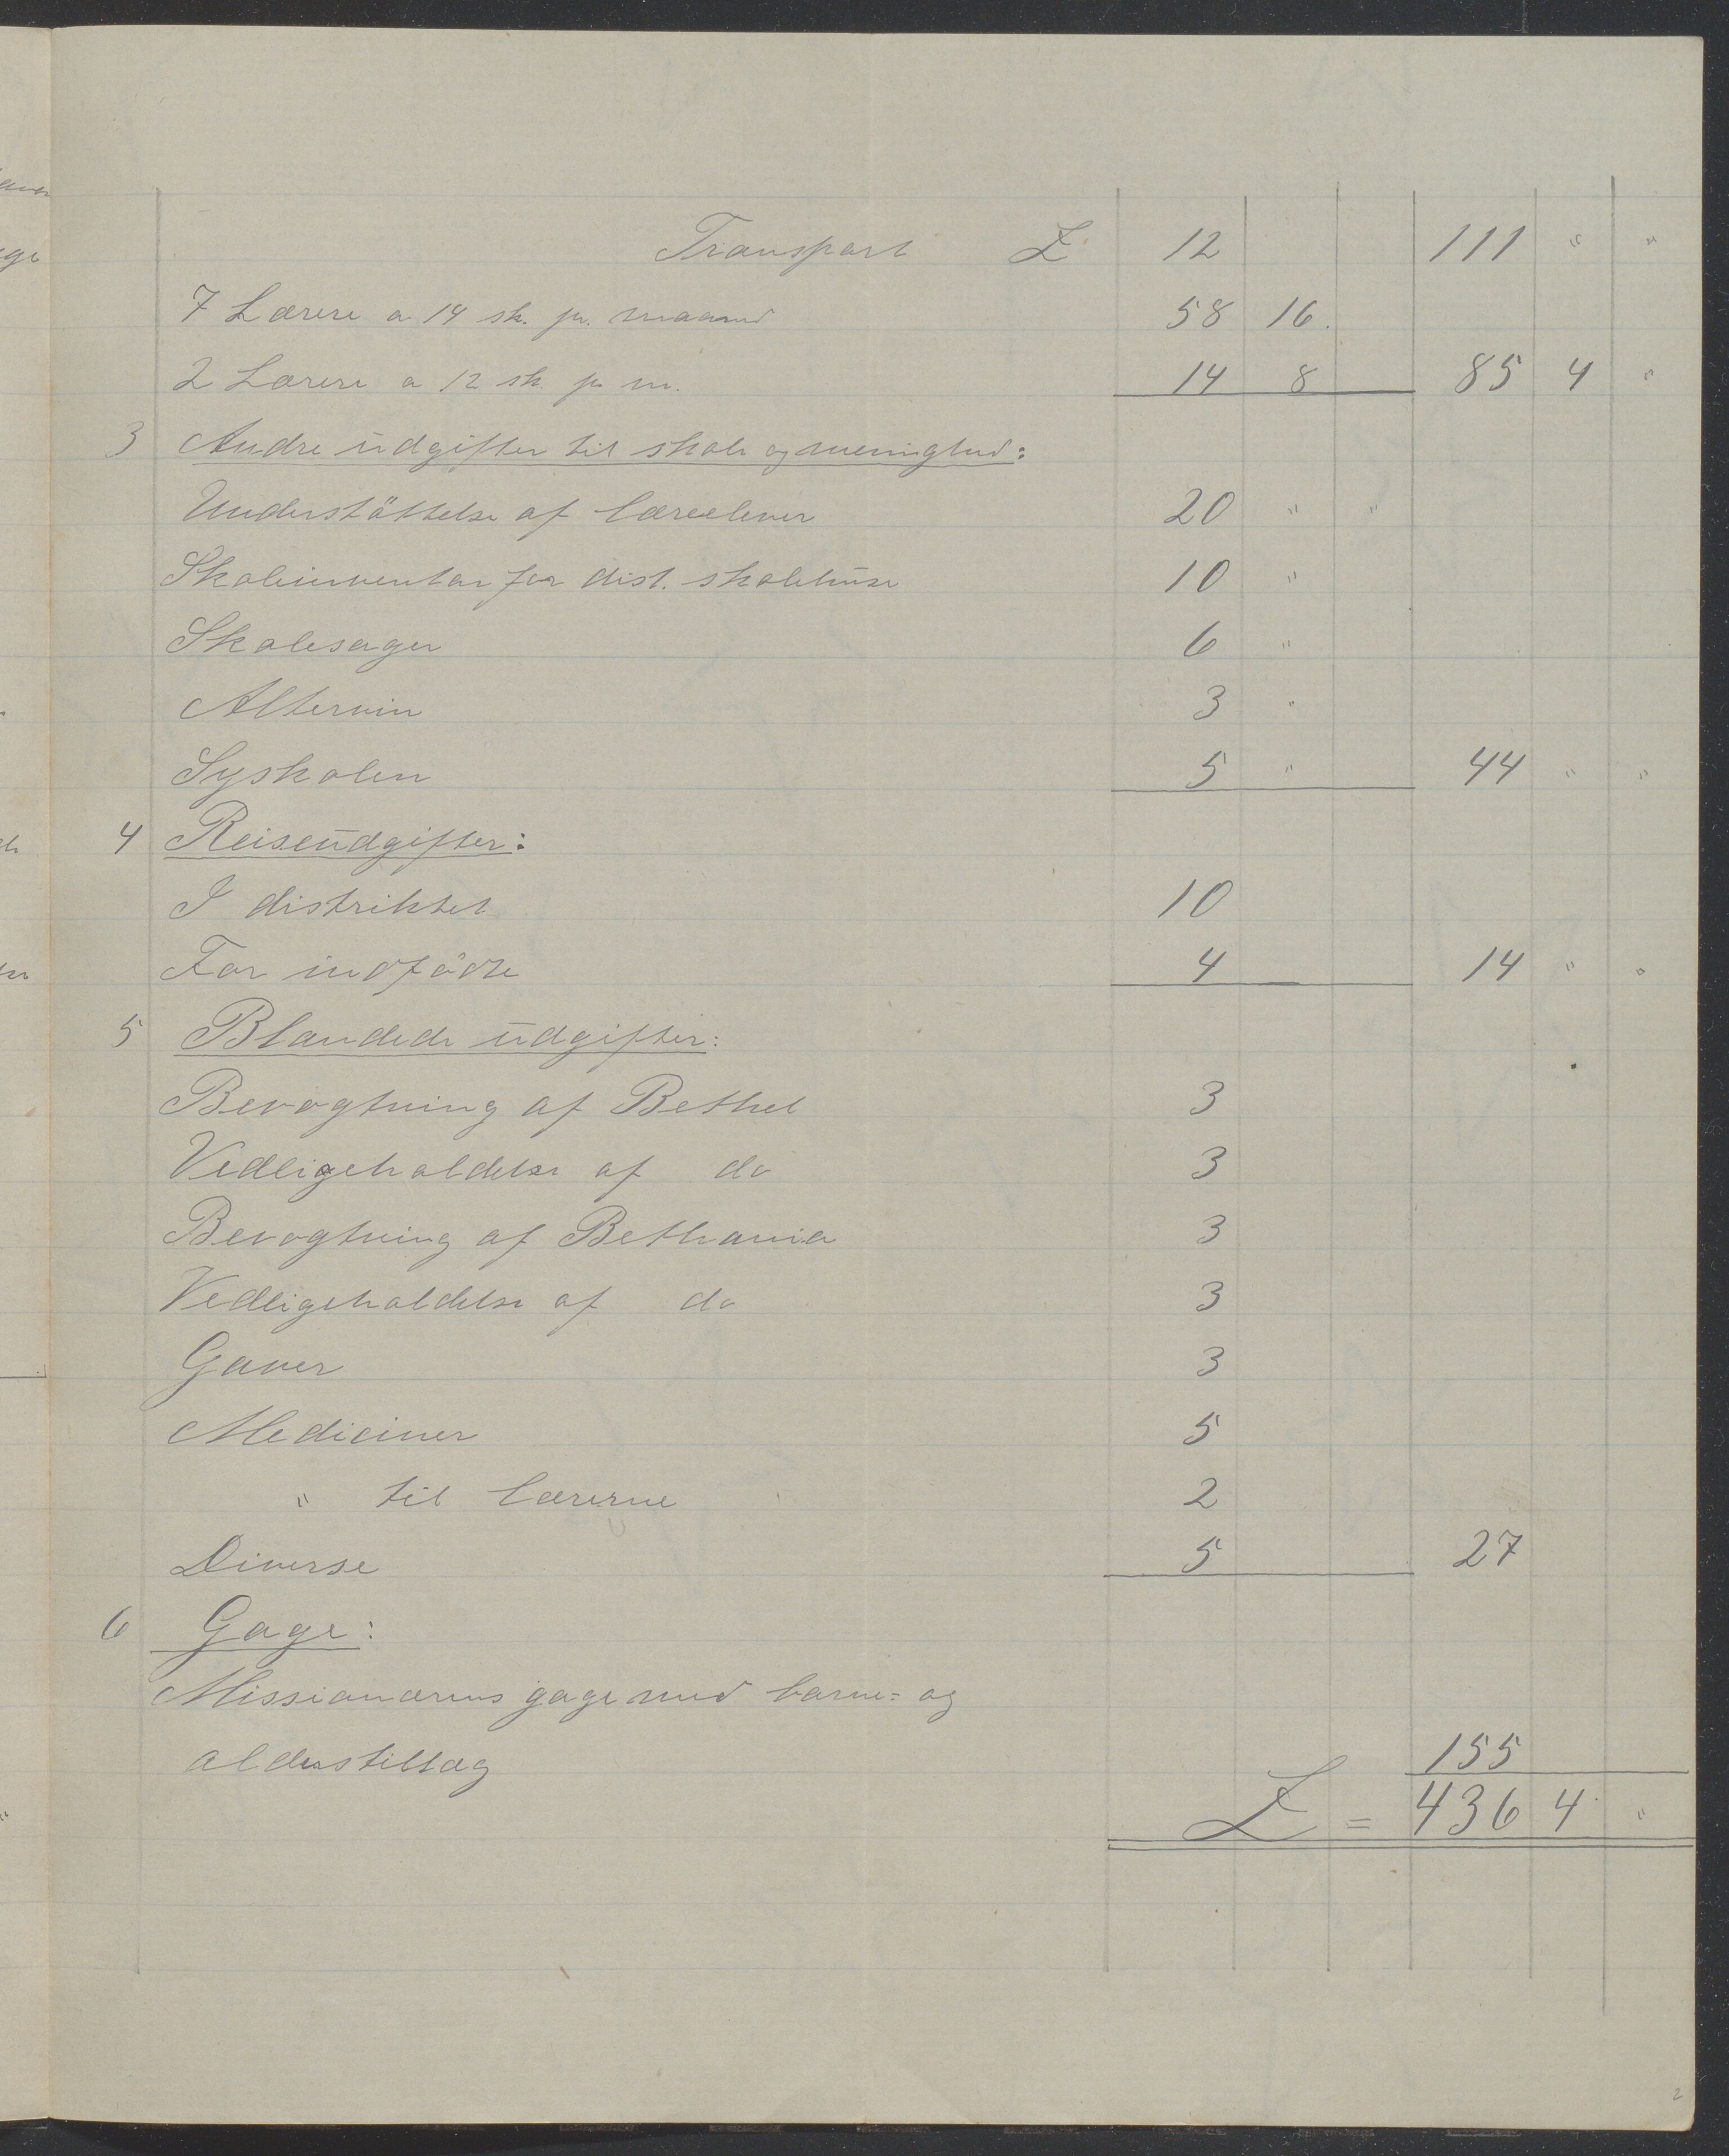 Transport £ 12 111 " "
7 Lærere a 14 sh. pr. maaned 58 16.
2 Lærere a 12 sh. p m. 14 8 85 4 "
3 Andre udgifter til skole og menighed:
Understöttelse af læreelever 20 " "
Skoleinventar for dist. skolehuse 10 "
Skolesager 6 "
Altervin 3 "
Syskolen 5 " 44 " "
4 Reiseudgifter:
I distriktet 10
For indfödte 4 14 " "
5 Blandede udgifter:
Bevogtning af Bethel 3
Vedligeholdelse af do 3
Bevogtning af Bethania 3
Vedligeholdelse af do 3
Gaver 3
Mediciner 5
" til lærerne 2
Diverse 5 27
6 Gage:
Missionærens gage med barne= og
alderstillæg 155
£ = 436 4 "
2